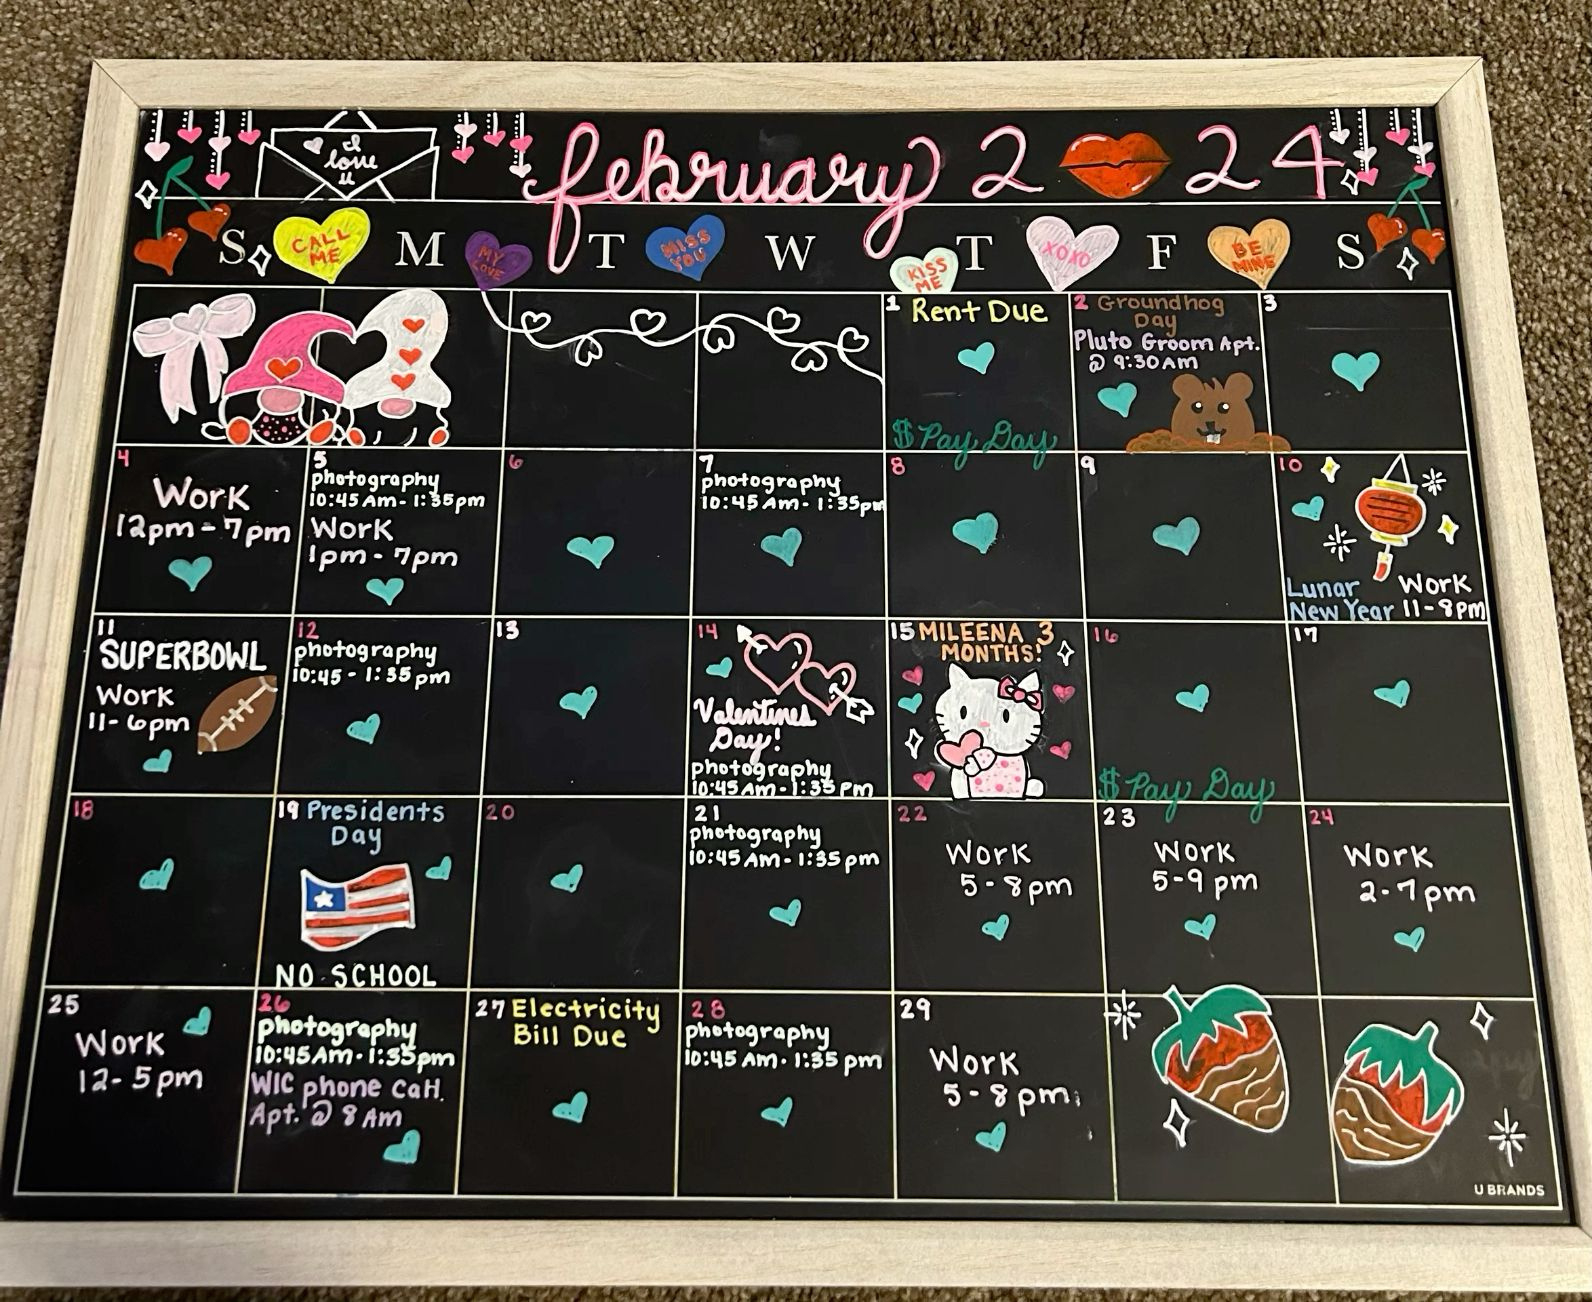 I
love
u
february 2 24
S M T W T F S
CALL
ME
MY
LOVE
MISS
YOU
KISS
ME
XOXO
BE
MINE
1 Rent Due
$ Pay Day
2 Groundhog
Day
Pluto Groom Apt.
@ 9:30 AM
3
4
Work
12pm - 7pm
5
photography
10:45 Am - 1:35pm
Work
1pm - 7pm
6
7
photography
10:45 Am - 1:35pm
8
9
10
Lunar
New Year
Work
11-8pm
11
SUPERBOWL
Work
11-6pm
12
photography
10:45 - 1:35 pm
13
14
Valentines
Day!
photography
10:45 Am - 1:35 pm
15 MILEENA 3
MONTHS!
16
$ Pay Day
17
18
19 Presidents
Day
NO SCHOOL
20
21
photography
10:45 Am - 1:35 pm
22
Work
5-8pm
23
Work
5-9 pm
24
Work
2-7pm
25
Work
12-5pm
26
photography
10:45 Am - 1:35pm
WIC phone call.
Apt. @ 8 Am
27 Electricity
Bill Due
28
photography
10:45 Am - 1:35 pm
29
Work
5-8pm
U BRANDS